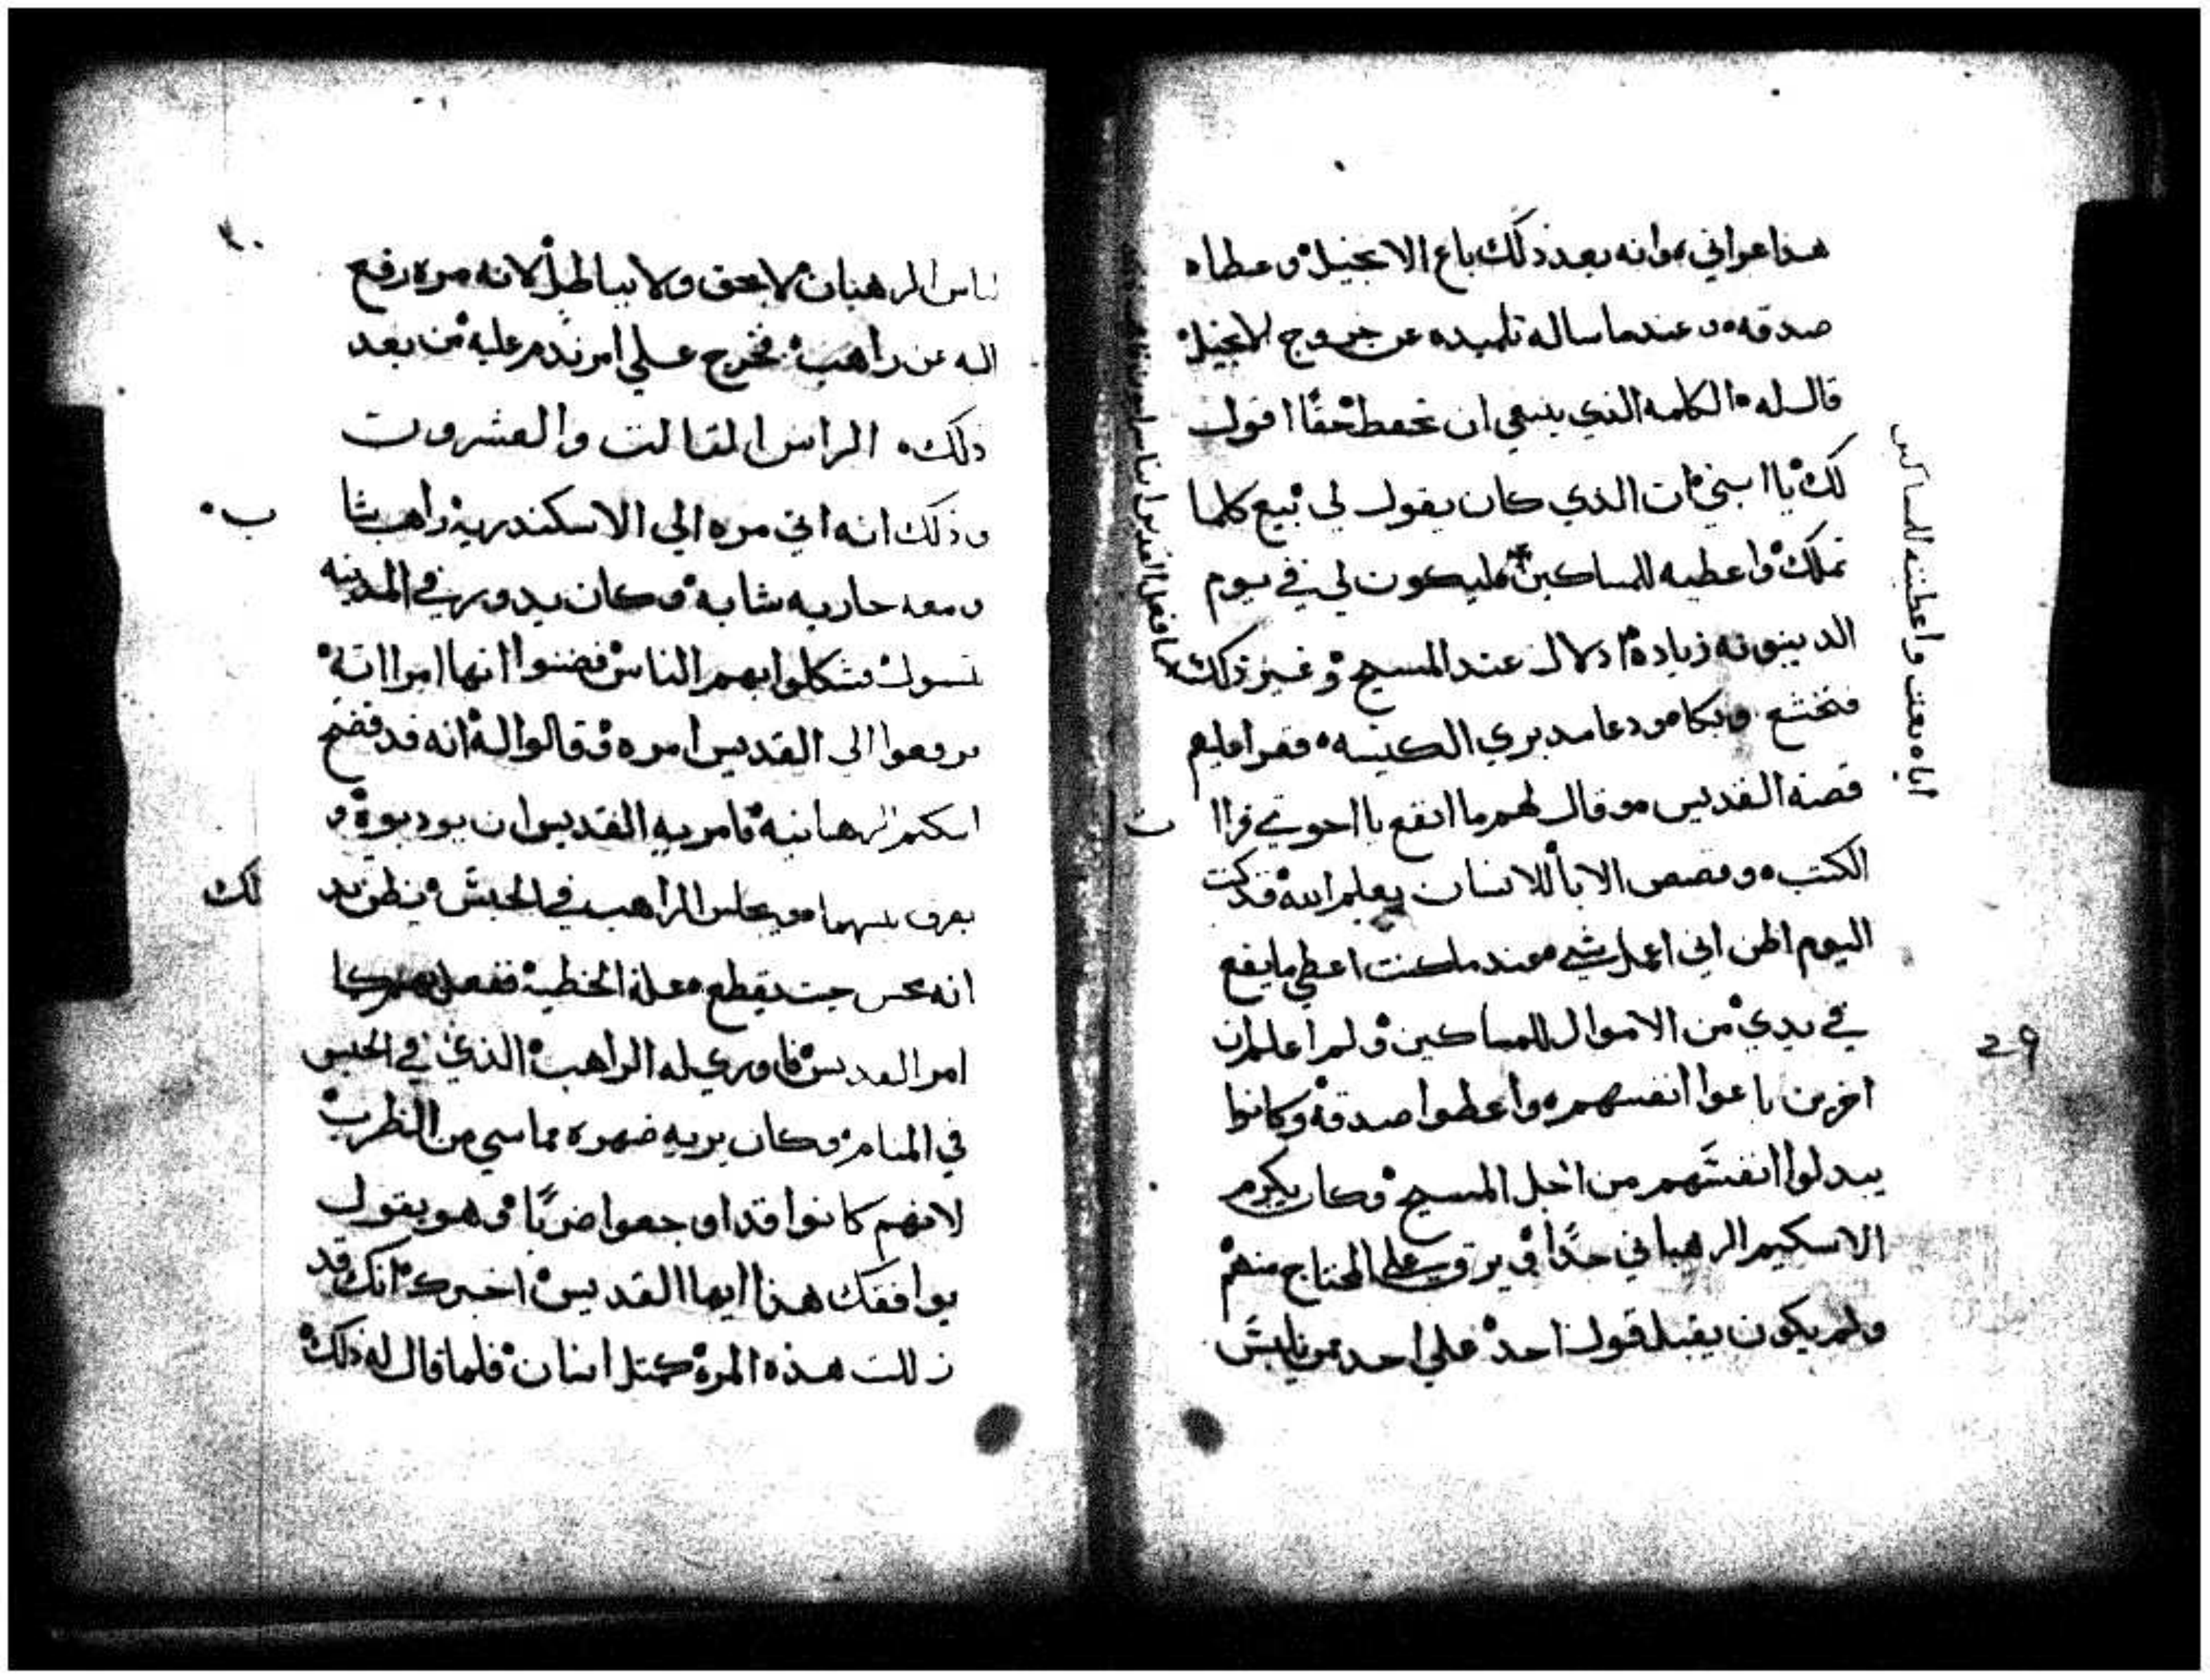 هذا عراني، وانه بعد ذلك باع الانجيل وعطاه
صدقه وعندما ساله تلميده عن خروج الانجيل
قال له الكلمه الذي ينبغي ان تحفط حقًا اقول
لك يا ابني ان الذي كان يقول لي بيع كلما
تملك واعطيه للمساكين ليكون لي في يوم
الدينونه زيادة ادلال عند المسيح وغير ذلك
فتخشع وبكا ودعا مدبري الكنيسه فقرا عليهم
قصة القديس وقال لهم ما انفع يا اخوتي قراا
الكتب وقصص الابا للانسان يعلم الله قد كنت
اليوم اظن اني اعمل شي عندما كنت اعطي ما يقع
في يدي من الاموال للمساكين ولم اعلم ان
اخرين باعوا انفسهم واعطوا صدقة وكانوا
يبدلوا انفسهم من اجل المسيح وكان يكرم
الاسكيم الرهباني جدًا و علي المحتاج منهم
ولم يكون يقبل قول احد علي احد من لابس
اياه بعت واعطيته للمساكين
29
ت
٣٠
لباس الرهبان لا بحق ولا بباطل لانه مره رفع
اليه عن راهب فخرج علي امر ندم عليه من بعد
ذلك الراس التالت والعشرون
وذلك انه اتي مره الي الاسكندرية راهب شاب
ومعه جاريه شابه وكان يدور في المدينه
يتسول فشكلوا بهم الناس فضنوا انها امراته
فرفعوا الي القديس امره وقالوا له انه قد فضح
اسكيم الرهبانيه فامر به القديس ان يودبوه و
يفرق بينهما ويجلس الراهب في الحبس فيظن بد لك
انه يقطع علة الخطية ففعل بهم كما
امر القديس فاوري له الراهب الذي في الحبس
في المنام وكان يريه ضهره من الظرب
لانهم كانوا قد اوجعوا ضربًا وهو يقول
يوافقك هذا ايها القديس اخبرك انك قد
زللت هذه المرة كمتل انسان فلما قال له ذلك